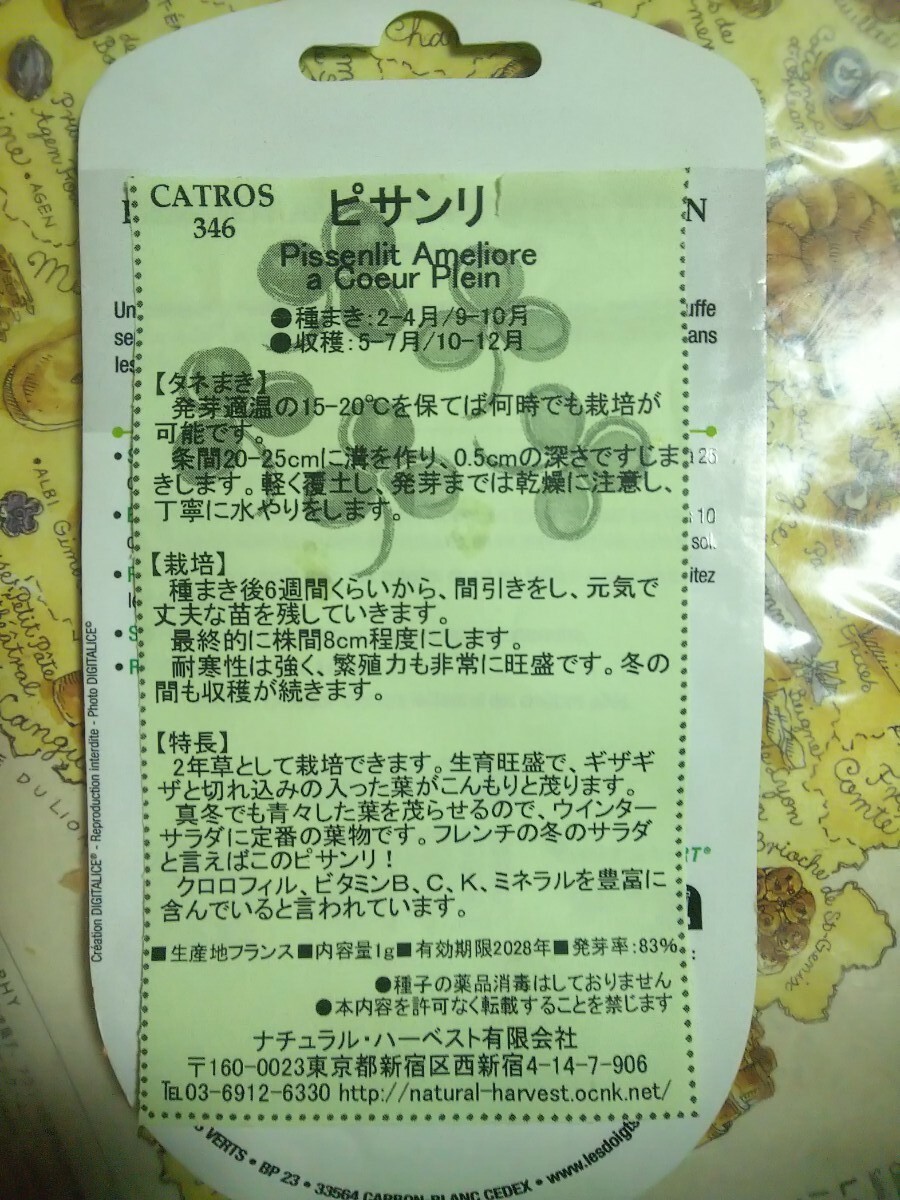 CATROS
346
ピサンリ
Pissenlit Ameliore
a Coeur Plein
●種まき:2-4月/9-10月
●収穫:5-7月/10-12月
【タネまき】
発芽適温の15-20℃を保てば何時でも栽培が
可能です。
条間20-25cmに溝を作り、0.5cmの深さですじま
きします。軽く覆土し、発芽までは乾燥に注意し、
丁寧に水やりをします。
【栽培】
種まき後6週間くらいから、間引きをし、元気で
丈夫な苗を残していきます。
最終的に株間8cm程度にします。
耐寒性は強く、繁殖力も非常に旺盛です。冬の
間も収穫が続きます。
【特長】
2年草として栽培できます。生育旺盛で、ギザギ
ザと切れ込みの入った葉がこんもりと茂ります。
真冬でも青々した葉を茂らせるので、ウインター
サラダに定番の葉物です。フレンチの冬のサラダ
と言えばこのピサンリ！
クロロフィル、ビタミンB、C、K、ミネラルを豊富に
含んでいると言われています。
■生産地フランス■内容量1g■有効期限2028年■発芽率:83%
●種子の薬品消毒はしておりません
●本内容を許可なく転載することを禁じます
ナチュラル・ハーベスト有限会社
〒160-0023東京都新宿区西新宿4-14-7-906
℡03-6912-6330 http://natural-harvest.ocnk.net/
Création DIGITALICE® - Reproduction interdite - Photo DIGITALICE®
VERTS • BP 23 • 33564 CARBON-BLANC CEDEX • www.lesdoigts
Un
se
les
uffe
ans
N
10
sol.
itez
AGEN
ALBI
Petit Pâté
Comté
Brioche de St Genix